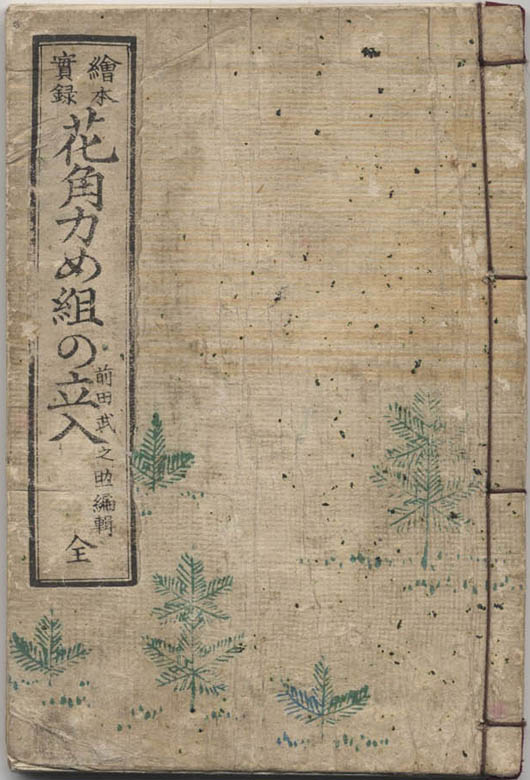 繪本
實録
花角力め組の立入
前田武之助編輯
全